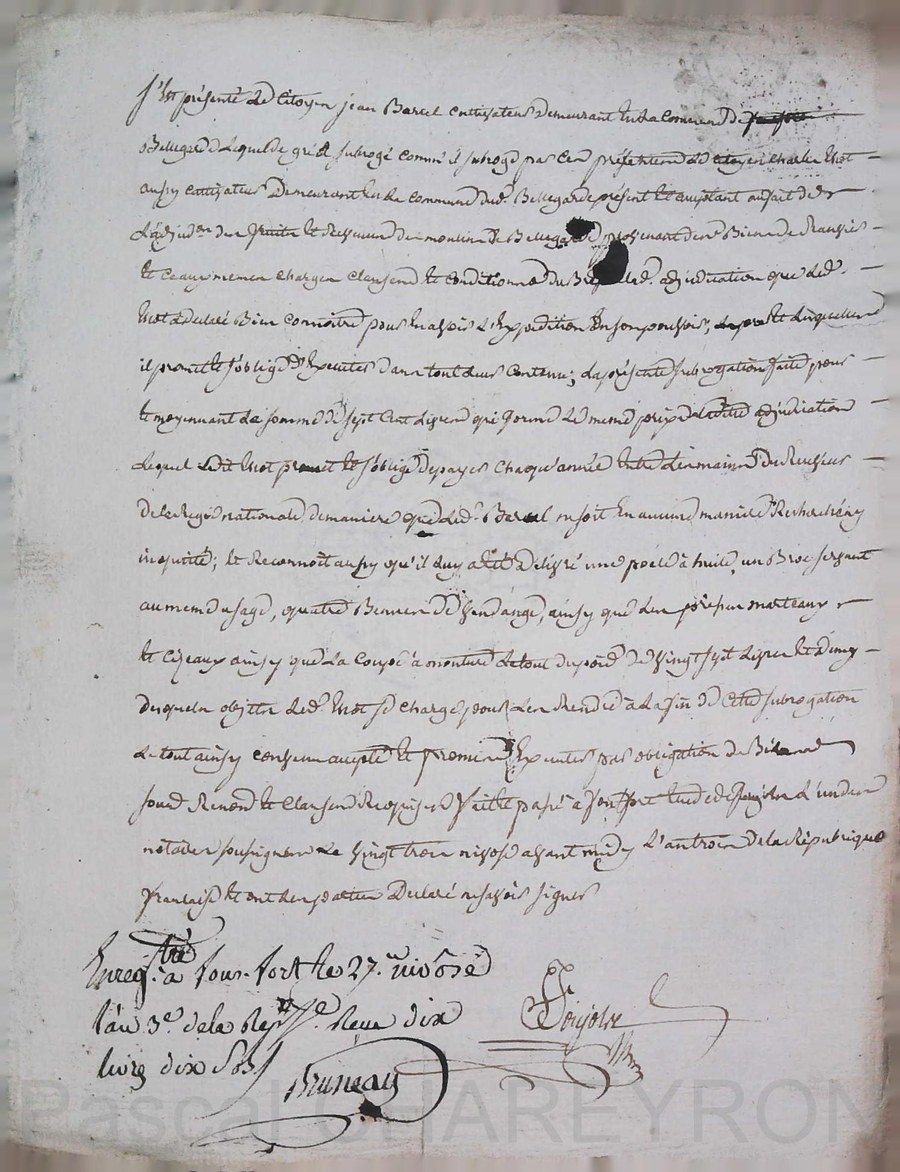 S'est présenté le Citoyen jean Barcel cultivateur demeurant en la Commune de
Bellegarde lequel de gré a subrogé comme il subroge par ces présentes le Citoyen Charles Usot
aussy cultivateur demeurant en la commune dud. Bellegarde présent et acceptant au fait de
L'adjudon des fruits et Revenus du moulin de Bellegarde provenant des Biens de
et ce aux memes charges clauses et conditions du lad. adjudication que led.
Usot a declaré Bien connoitre pour en avoir L'Expedition En son pouvoir,
il promet et s'oblige d'Executer dans tout leur contenu; La présente subrogation faite pour
et moyennant la somme de sept Cent livres qui forme le meme prix de ladite adjudication
lequel ledit Usot promet et s'oblige de payer chaque année entre les mains du Receveur
de la Regie nationale de maniere que led. Barcel ne soit En aucune maniere Recherché ny
inquieté; et Reconnoit aussy qu'il luy a été délivré une poele à huile, un Broc servant
au meme usage, quatre Bennes de Vendange, ainsy que les marteaux
et Cizeaux ainsy que La Coupe à mouture le tout du poid de Vingt sept livres et demy
desquels objets led. Usot se charge pour les Rendre à la fin de Cette subrogation
le tout ainsy convenu accepté et promis Executer par obligation de Biens
soumis Renoncé et Clauses Requises Fait et passé à Fonfort Etude de L'un des
notaires soussignés le Vingt trois nivose avant midy L'an trois de la République
française et ont les parties Declaré ne savoir signer
Enregtré à fons-fort le 27. nivôse
l'an 3e de la Repque. Reçu dix
livres dix Sols
Bruneau